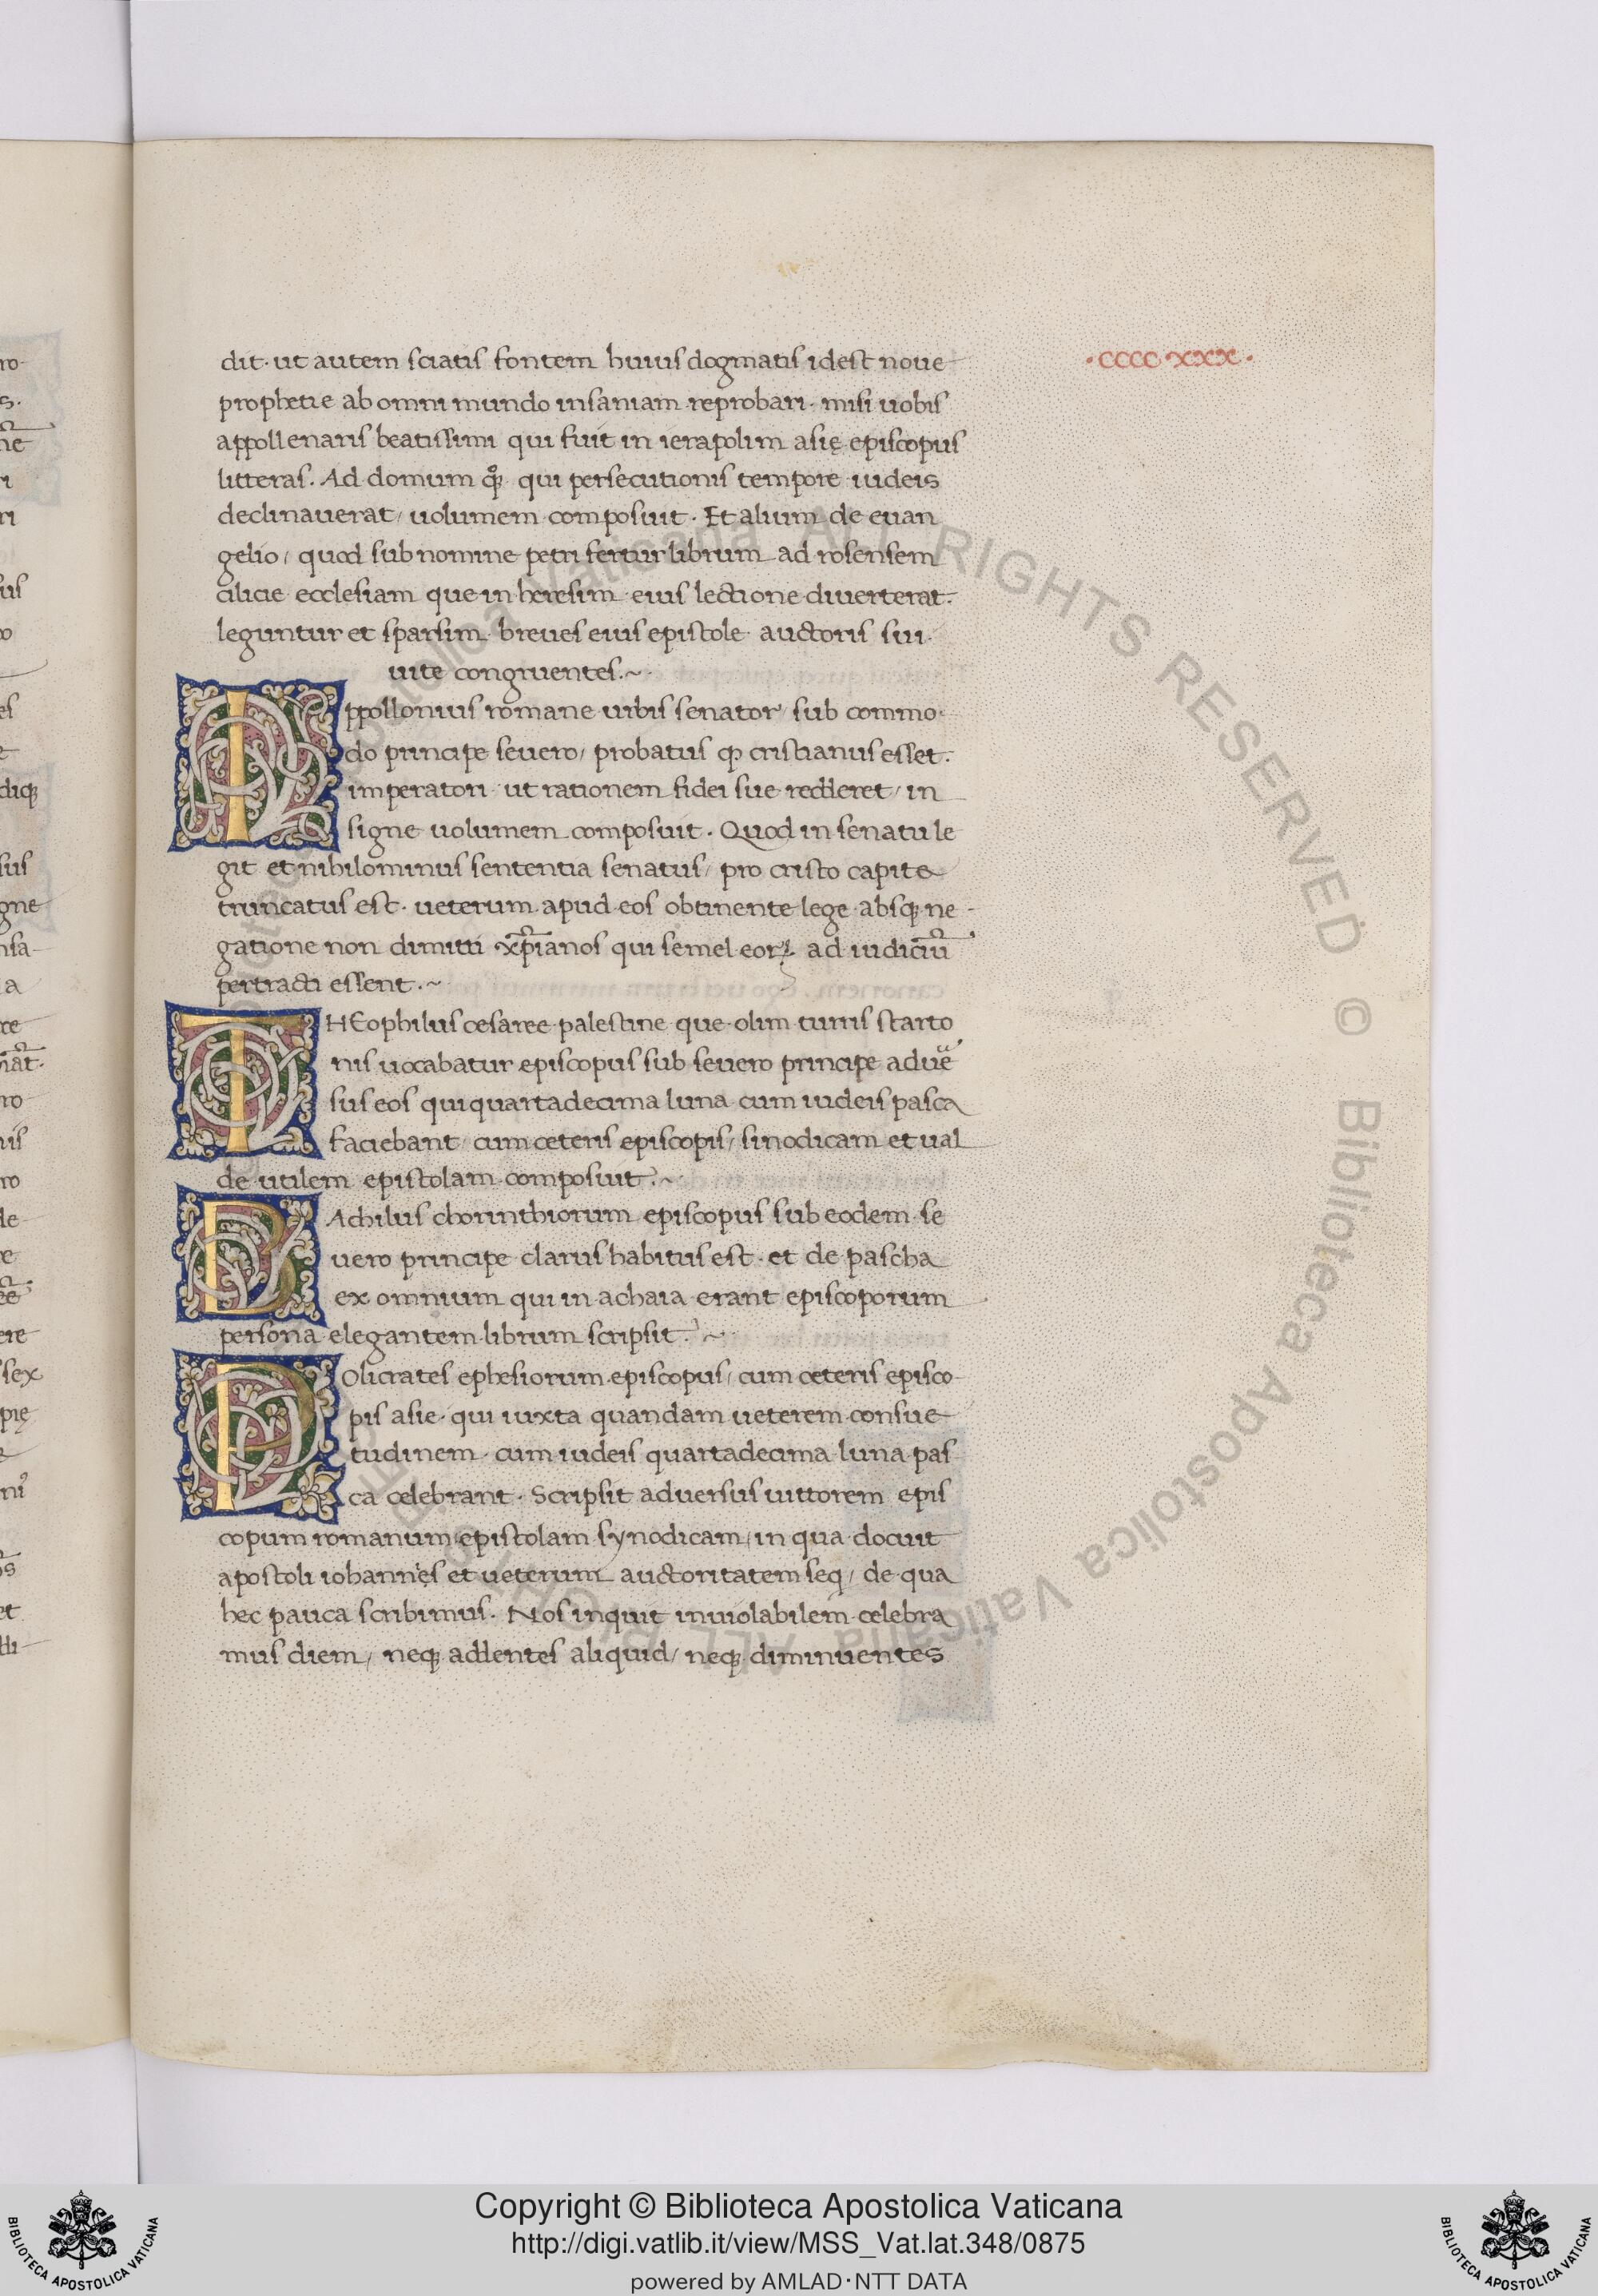 dit· ut autem sciatis fontem huius dogmatis idest noue
prophetie ab omni mundo insaniam reprobari· misi uobis
appollenaris beatissimi qui fuit in ierapolim asię episcopus
litteras. Ad domum qͦꝫ qui persecutionis tempore iudeis
declinauerat/ uolumem composuit. Et alium de euan
gelio/ quod sub nomine petri fertur librum ad rosensem
cilicie ecclesiam que in heresim eius lectione diuerterat.
leguntur et sparsim breues eius epistole auctoris sui
uite congruentes.~
·CCCC·XXX·
Ippollonius romane urbis senator/ sub commo
do principe seuero/ probatus ꝙ cristianus esset.
imperatori ut rationem fidei sue redderet/ in
signe uolumem composuit. Quod in senatu le
git et nihilominus sententia senatus/ pro cristo capite
truncatus est. ueterum apud eos obtinente lege absqꝫ ne
gatione non dimitti xp̄ianos qui semel eoꝝ ad iudiciū
pertracti essent.~
THEophilus cesaree palestine que olim turris starto
nis uocabatur episcopus sub seuero principe adue̅
sus eos qui quartadecima luna cum iudeis pasca
faciebant/ cum ceteris episcopis/ sinodicam et ual
de utilem epistolam composuit.~
BAchilus chorinthiorum episcopus sub eodem se
uero principe clarus habitus est· et de pascha
ex omnium qui in achaia erant episcoporum
persona elegantem librum scripsit.~
POlicrates ephesiorum episcopus/ cum ceteris episco
pis asie· qui iuxta quandam ueterem consue
tudinem· cum iudeis quartadecima luna pas
ca celebrant. Scripsit aduersus uittorem epis
copum romanum epistolam synodicam/ in qua docuit
apostoli iohannes et ueterum auctoritatem seq/ de qua
hec pauca scribimus. Nos inquit inuiolabilem celebra
mus diem/ neqꝫ addentes aliquid/ neqꝫ diminuentes
Copyright © Biblioteca Apostolica Vaticana
http://digi.vatlib.it/view/MSS_Vat.lat.348/0875
powered by AMLAD·NTT DATA
BIBLIOTECA APOSTOLICA VATICANA
BIBLIOTECA APOSTOLICA VATICANA